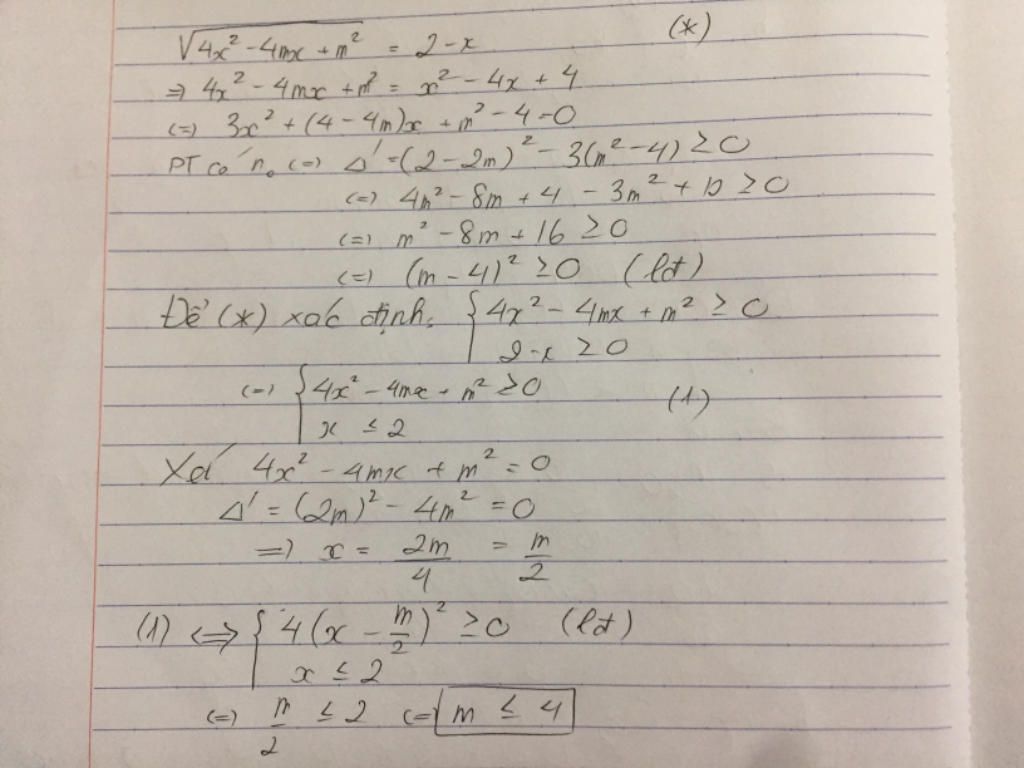 √(4x² - 4mx + m²) = 2 - x (*)
=> 4x² - 4mx + m² = x² - 4x + 4
(=) 3x² + (4 - 4m)x + m² - 4 = 0
PT có n₀ (=) Δ' = (2 - 2m)² - 3(m² - 4) ≥ 0
(=) 4m² - 8m + 4 - 3m² + 12 ≥ 0
(=) m² - 8m + 16 ≥ 0
(=) (m - 4)² ≥ 0 (lđ)
Để (*) xác định: { 4x² - 4mx + m² ≥ 0
2 - x ≥ 0
(=) { 4x² - 4mx + m² ≥ 0 (1)
x ≤ 2
Xét 4x² - 4mx + m² = 0
Δ' = (2m)² - 4m² = 0
=> x = 2m/4 = m/2
(1) <=> { 4(x - m/2)² ≥ 0 (lđ)
x ≤ 2
(=) m/2 ≤ 2 (=) m ≤ 4